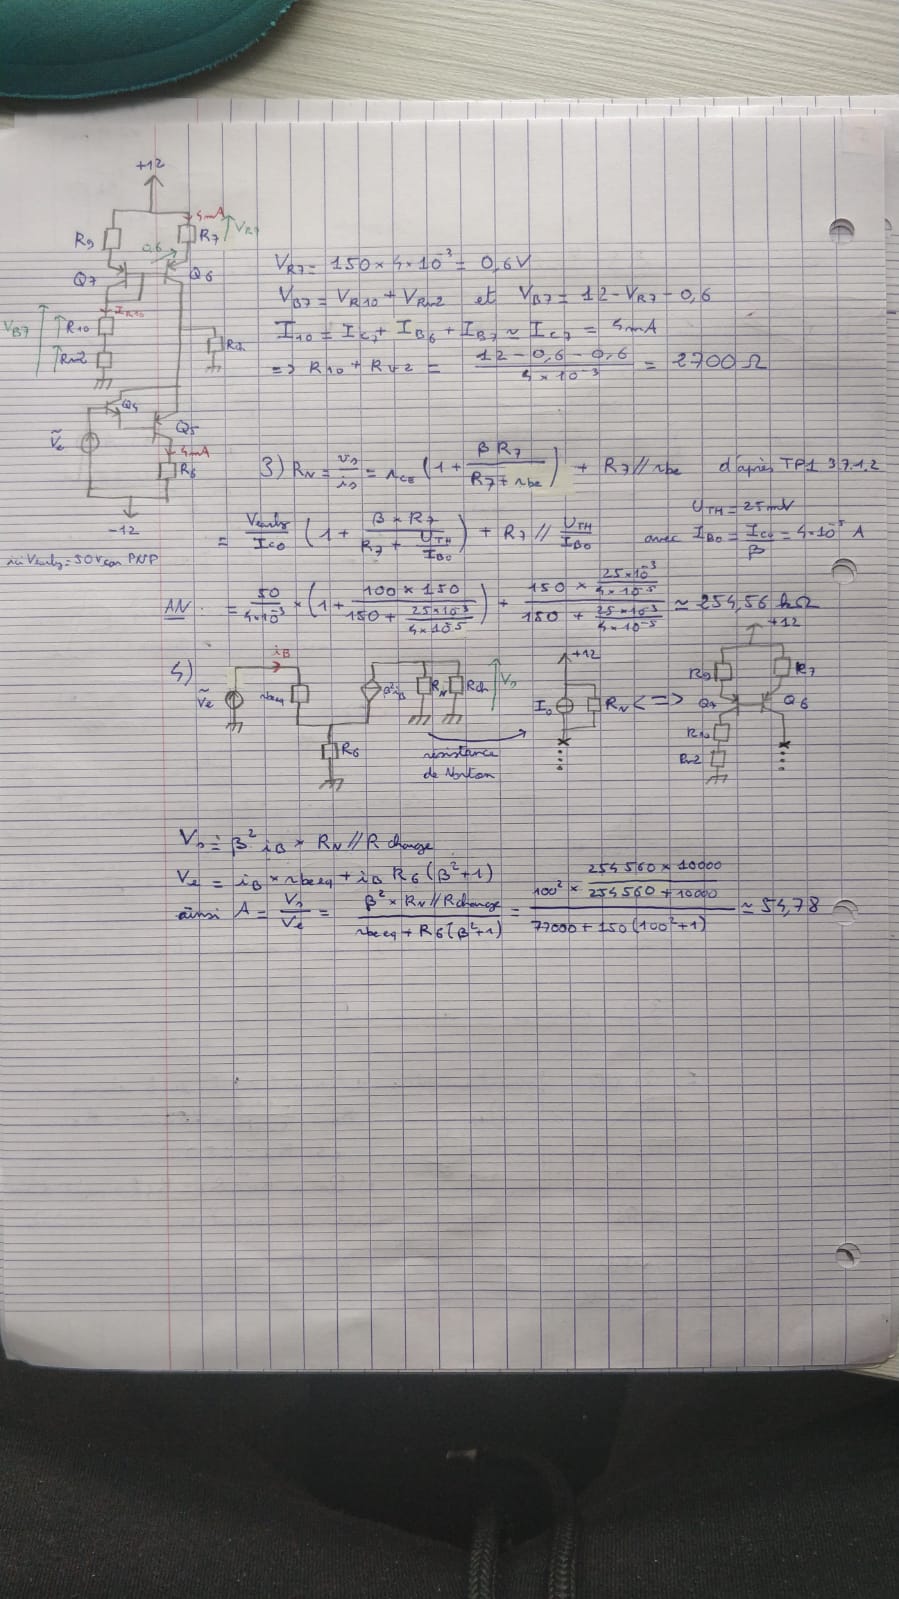 +12
4mA
VR7
R9
R7
0,6
Q7
Q6
IR10
VB7
R10
Rv2
Rch
Q4
Q5
Ṽe
4mA
R6
-12
ici Vearly = 50V car PNP
VR7 = 150 × 4×10⁻³ = 0,6V
VB7 = VR10 + VRv2 et VB7 = 12 - VR7 - 0,6
I10 = Ic7 + IB6 + IB7 ≈ Ic7 = 4mA
=> R10 + Rv2 = (12 - 0,6 - 0,6) / (4×10⁻³) = 2700 Ω
3) RN = vs/is = rce (1 + βR7 / (R7 + rbe)) + R7 // rbe d'après TP1 3.7.1.2
UTH = 25mV
= Vearly/Ic0 (1 + β×R7 / (R7 + UTH/IB0)) + R7 // UTH/IB0 avec IB0 = Ic0/β = 4×10⁻⁵ A
AN. = 50/(4×10⁻³) × (1 + (100×150) / (150 + (25×10⁻³)/(4×10⁻⁵))) + (150 × (25×10⁻³)/(4×10⁻⁵)) / (150 + (25×10⁻³)/(4×10⁻⁵)) ≈ 254,56 kΩ
4)
iB
Ṽe
rbeeq
β²iB
RN
Rch
Vs
R6
résistance
de Norton
+12
I0
RN
<=>
+12
R9
R7
Q7
Q6
R10
Rv2
Vs = β² iB × RN // Rcharge
Ve = iB × rbeeq + iB R6 (β²+1)
ainsi A = Vs/Ve = (β² × RN // Rcharge) / (rbeeq + R6(β²+1)) = (100² × (254560 × 10000)/(254560 + 10000)) / (77000 + 150(100²+1)) ≈ 54,78